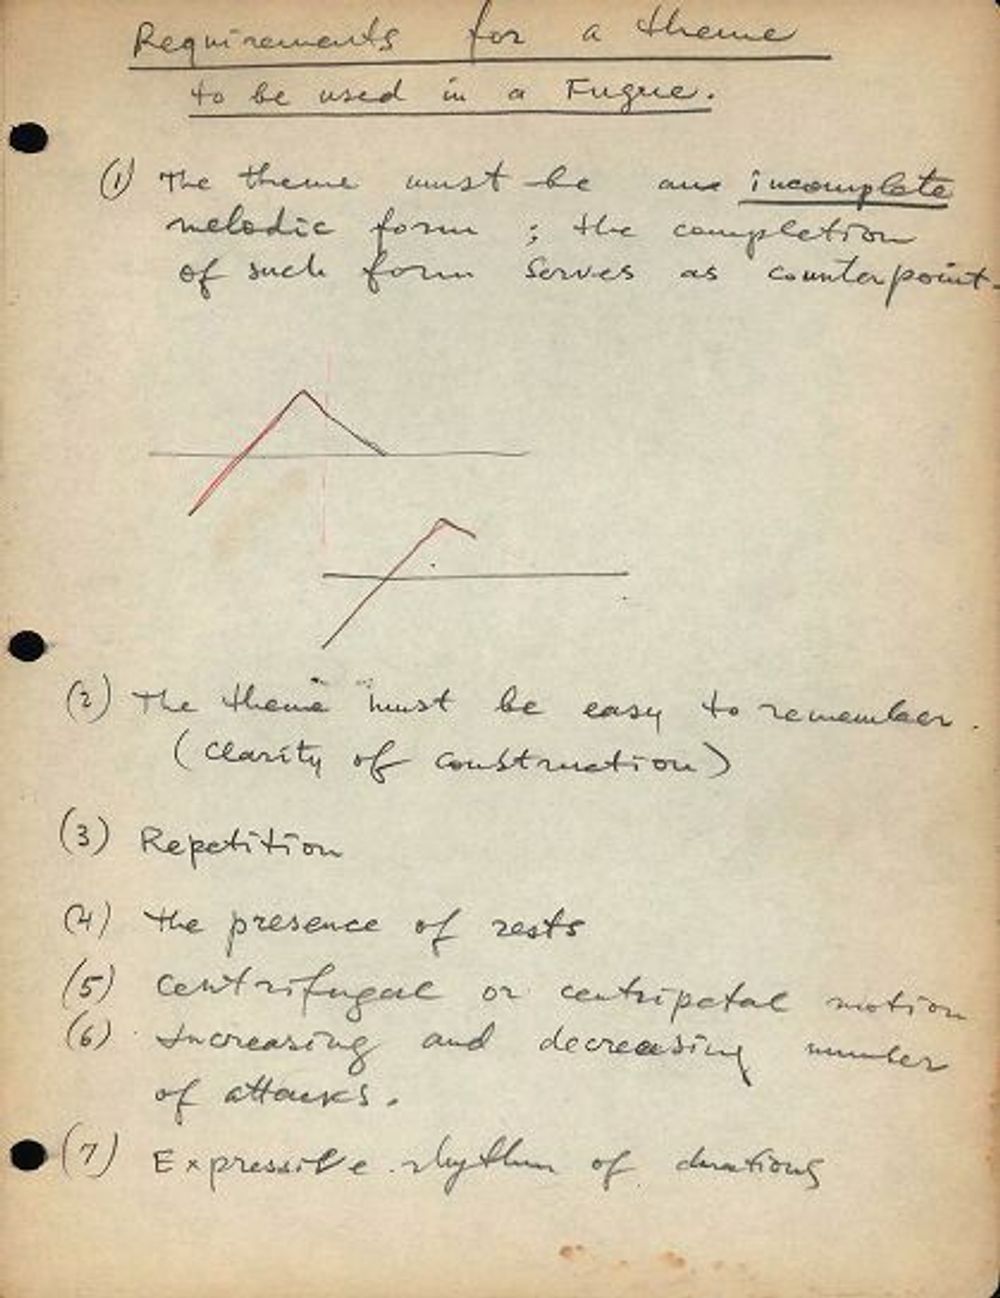 Requirements for a theme
to be used in a Fugue.
(1) The theme must be an incomplete
melodic form ; the completion
of such form serves as counterpoint.
(2) The theme must be easy to remember.
(clarity of construction)
(3) Repetition
(4) the presence of rests
(5) centrifugal or centripetal motion
(6) Increasing and decreasing number
of attacks.
(7) Expressive rhythm of durations